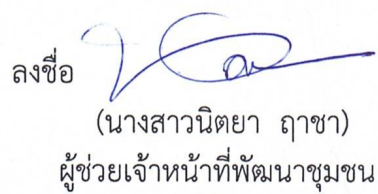 ลงชื่อ
(นางสาวนิตยา ฤาชา)
ผู้ช่วยเจ้าหน้าที่พัฒนาชุมชน